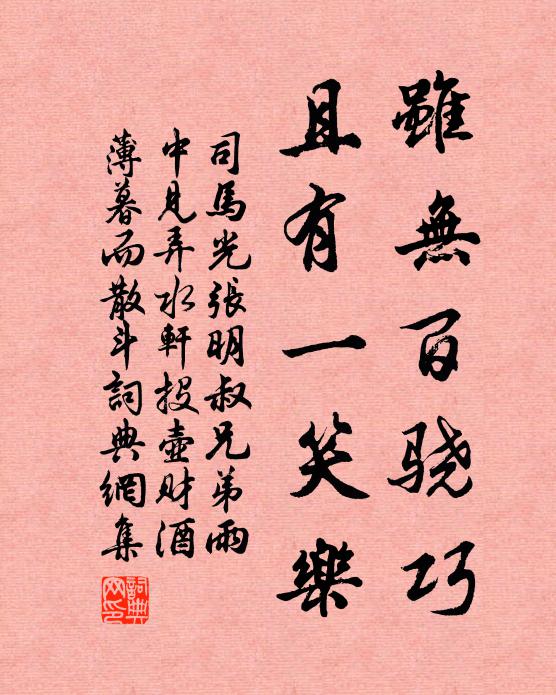 雖無百骁巧
且有一笑樂
司馬光張明叔兄弟雨
中見弄水軒投壺财酒
薄暮而散斗詞典網集
詞典網印